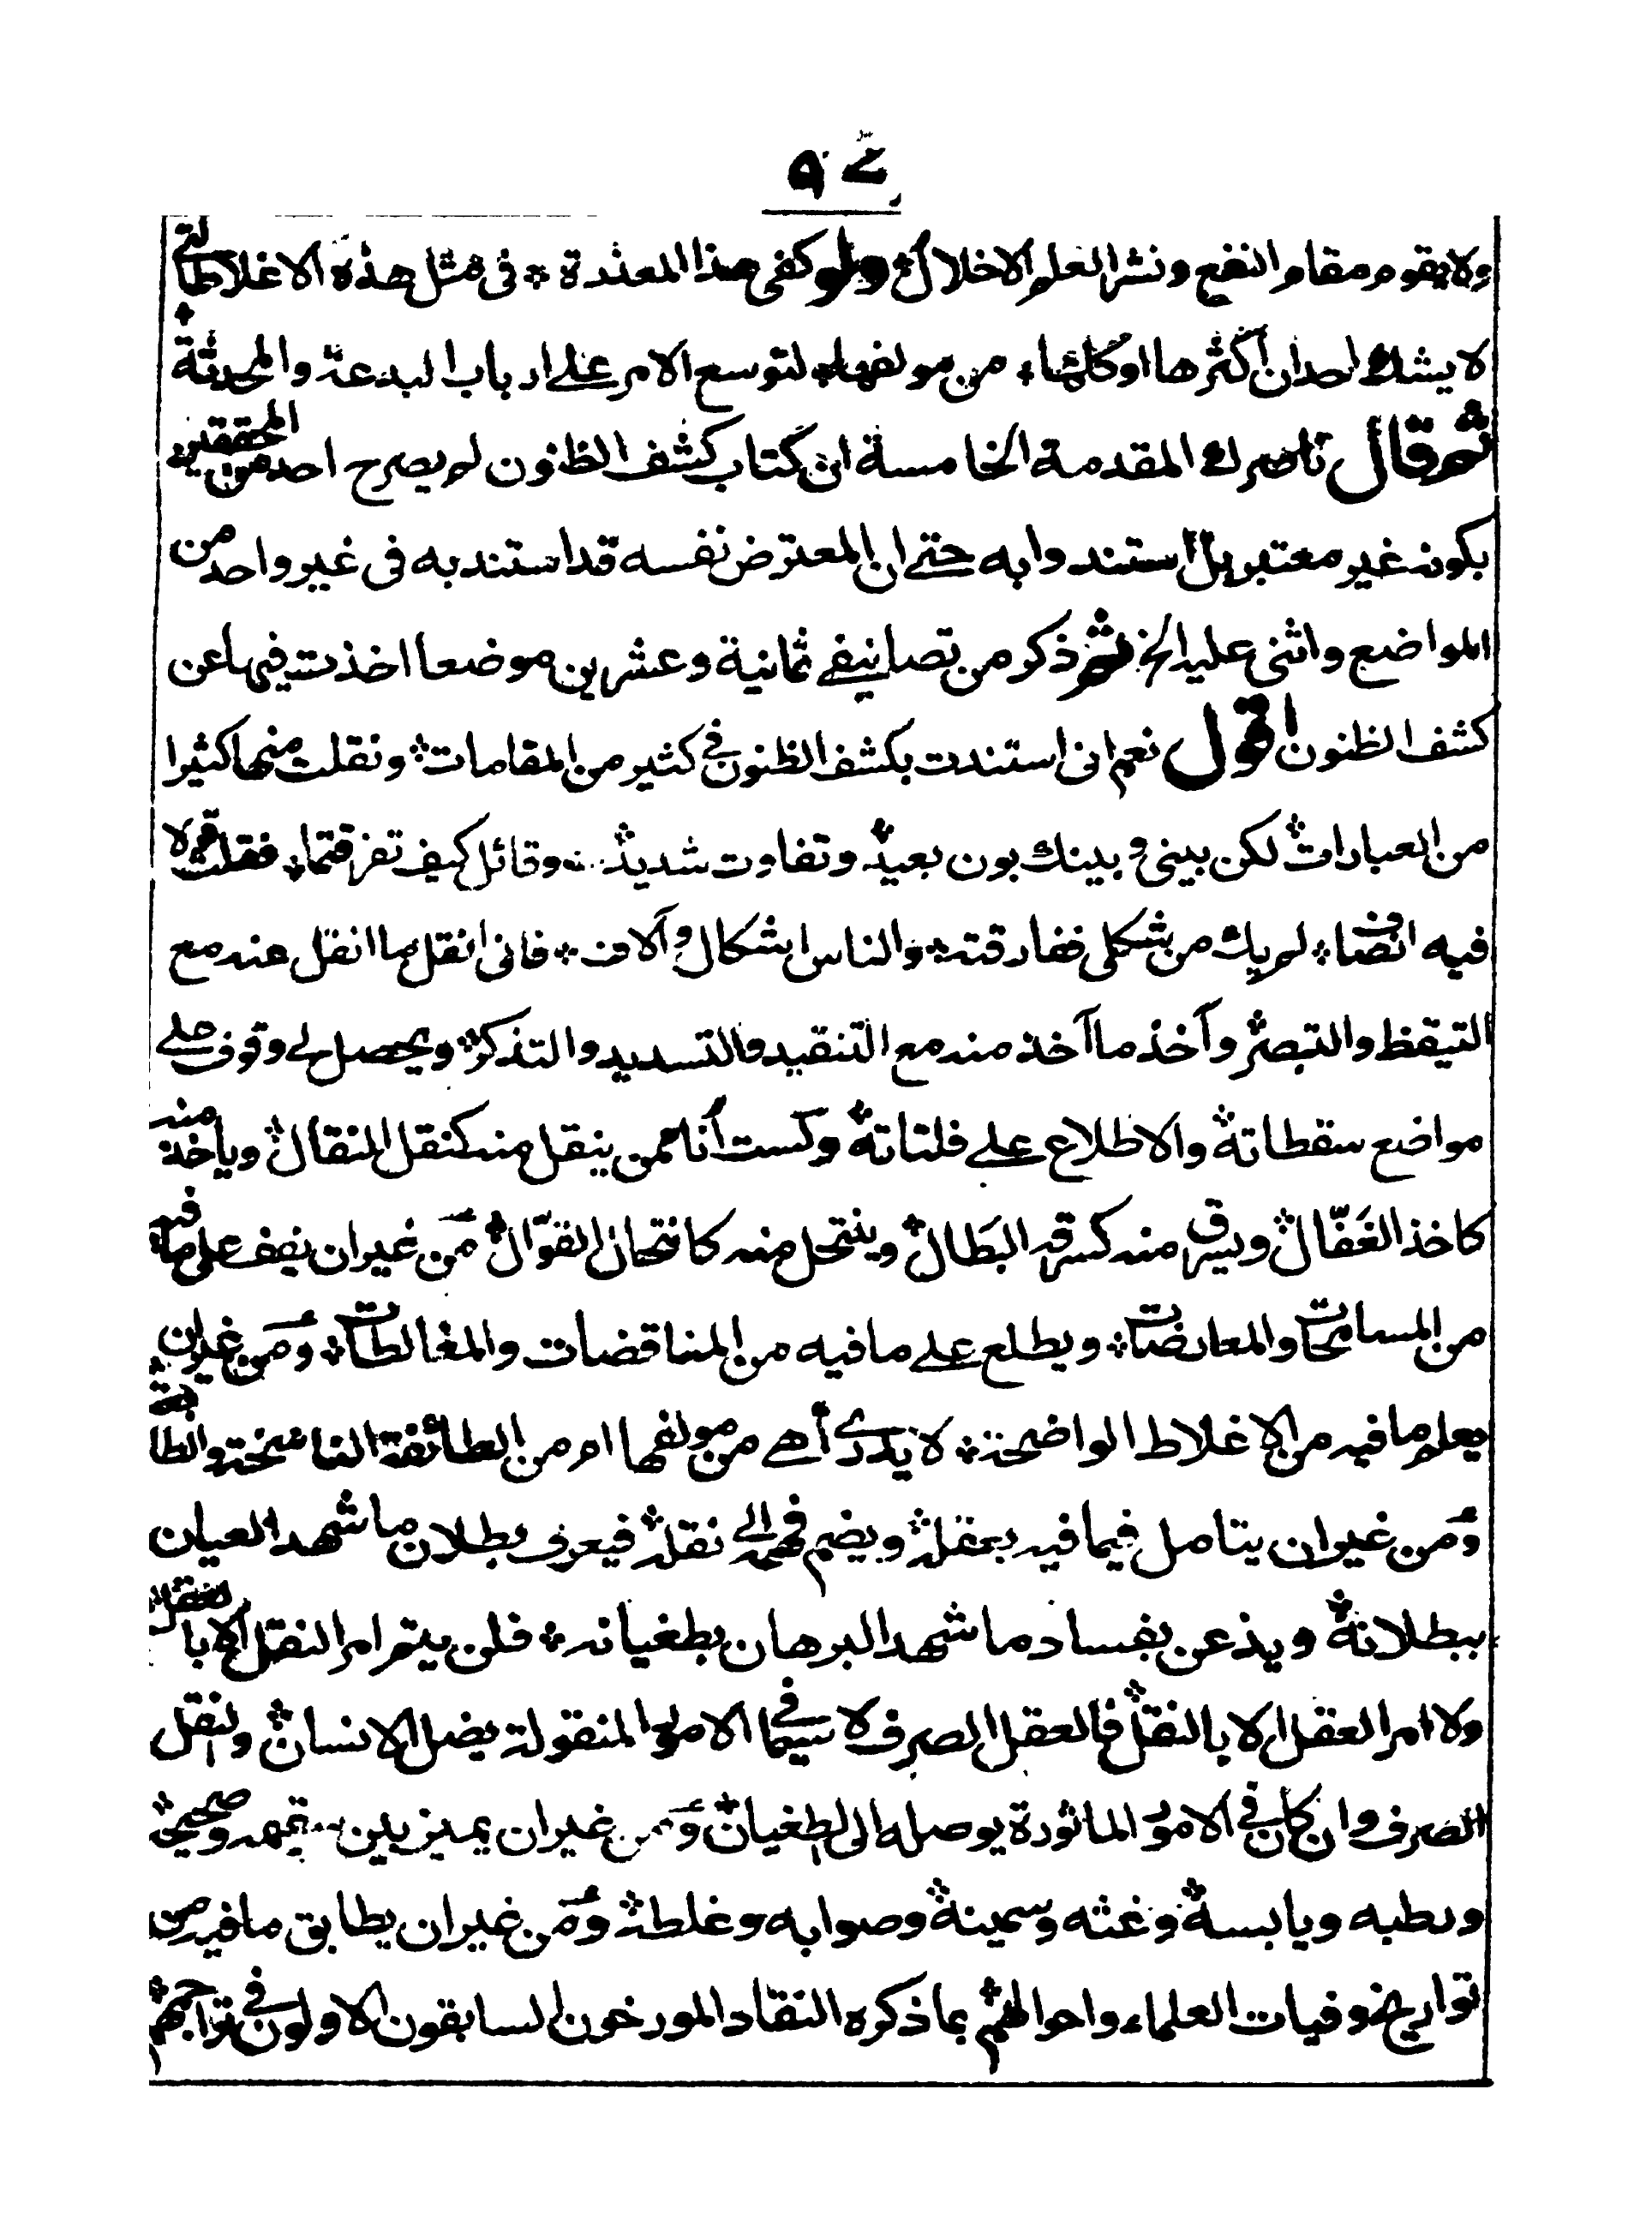 ولا يقوم مقام النفع ونشر العلم الاخلال ولو كفى هذا المعذرة في مثل هذه الاغلاط التي
لا يشك احد ان اكثرها او كلها من مولفها لتوسع الامر على ارباب البدعة والمحدثة
ثم قال ناصرك المقدمة الخامسة ان كتاب كشف الظنون لم يصرح احد من المحققين
بكونه غير معتبر بل استندوا به حتى ان المعترض نفسه قد استند به في غير واحد من
المواضع واثنى عليه الخ ثم ذكر من تصانيفي ثمانية وعشرين موضعا اخذت فيها عن
كشف الظنون اقول نعم انى استندت بكشف الظنون في كثير من المقامات ونقلت منها كثيرا
من العبارات لكن بيني وبينك بون بعيد وتفاوت شديد وقائل كيف تفرقتما فقلت قولا
فيه انصاف لم يك من شكلي ففارقته والناس اشكال وآلاف فانى انقل ما انقل عنه مع
التيقظ والتبصر وآخذ ما آخذ منه مع التنقيد والتسديد والتذكر ويحصل لي وقوف على
مواضع سقطاته والاطلاع على فلتاته ولست أنا ممن ينقل منه كنقل المنقال وياخذ منه
كاخذ الغفّال ويسرق منه كسرقة البَطال وينتحل منه كانتحال القوّال من غير ان يقف على ما فيه
من المسامحات والمعارضات ويطلع على ما فيه من المناقضات والمغالطات ومن غير ان
يعلم ما فيه من الاغلاط الواضحة لا يدرى أهي من مولفها ام من الطائفة الناسخة والطابعة
ومن غير ان يتامل فيما فيه بعقله ويضم فهمه الى نقله فيعرف بطلان ما شهد العيان
ببطلانه ويذعن بفساد ما شهد البرهان بطغيانه فلن يتم امر النقل الا بالعقل
ولا امر العقل الا بالنقل فالعقل الصرف لا سيما في الامور المنقولة يضل الانسان والنقل
الصرف وان كان في الامور الماثورة يوصله الى الطغيان ومن غير ان يميز بين سقيمه وصحيحه
ورطبه ويابسه وغثه وسمينه وصوابه وغلطه ومن غير ان يطابق ما فيه من
تواريخ وفيات العلماء واحوالهم بما ذكره النقاد المورخون السابقون الاولون في تراجمهم